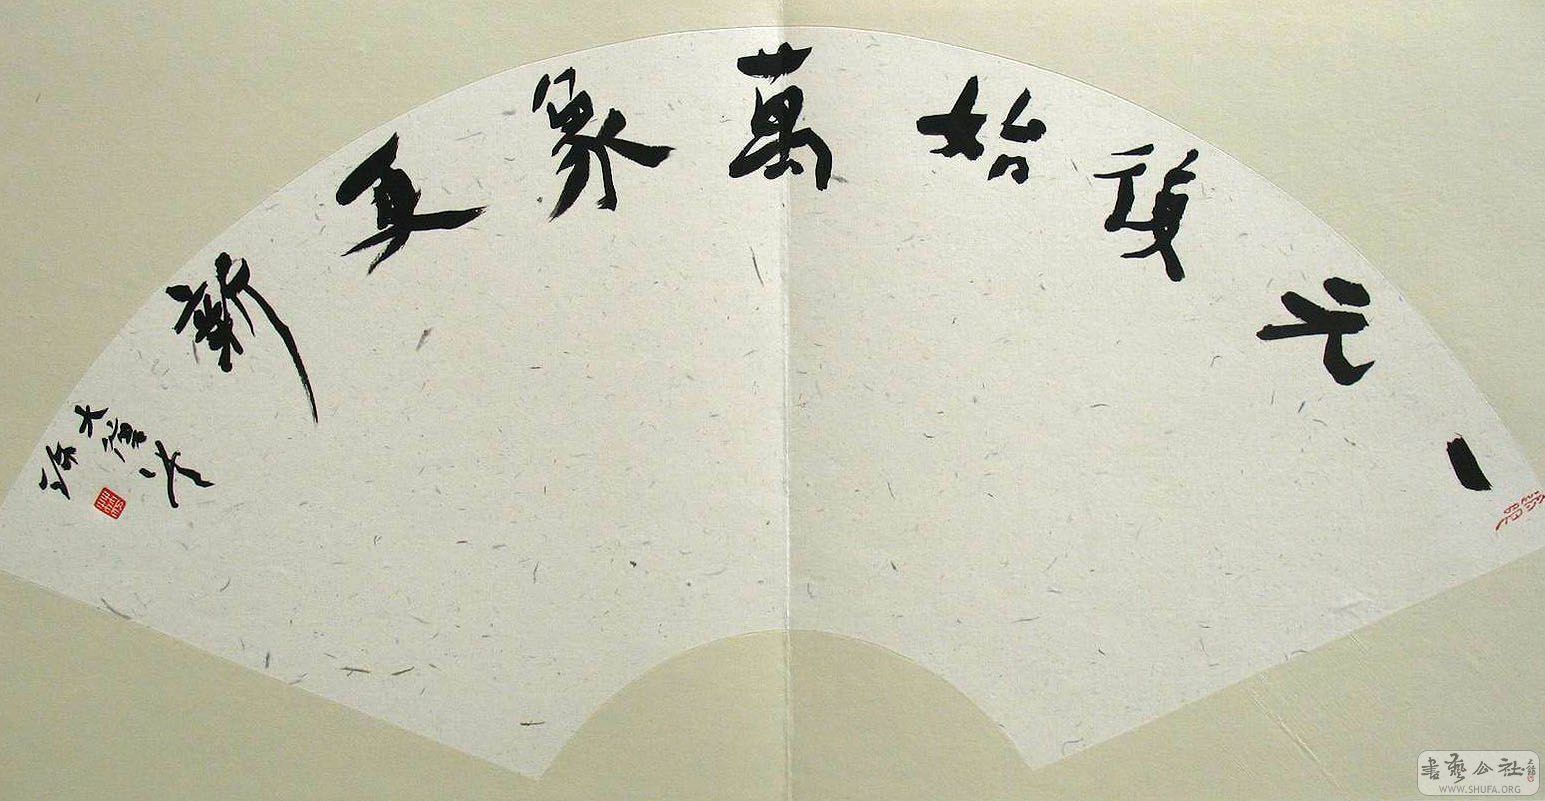 一元復始萬象更新
書藝公社
WWW.SHUFA.ORG